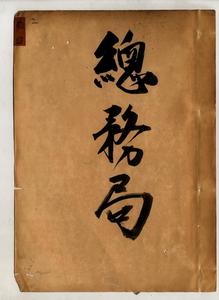 總務局